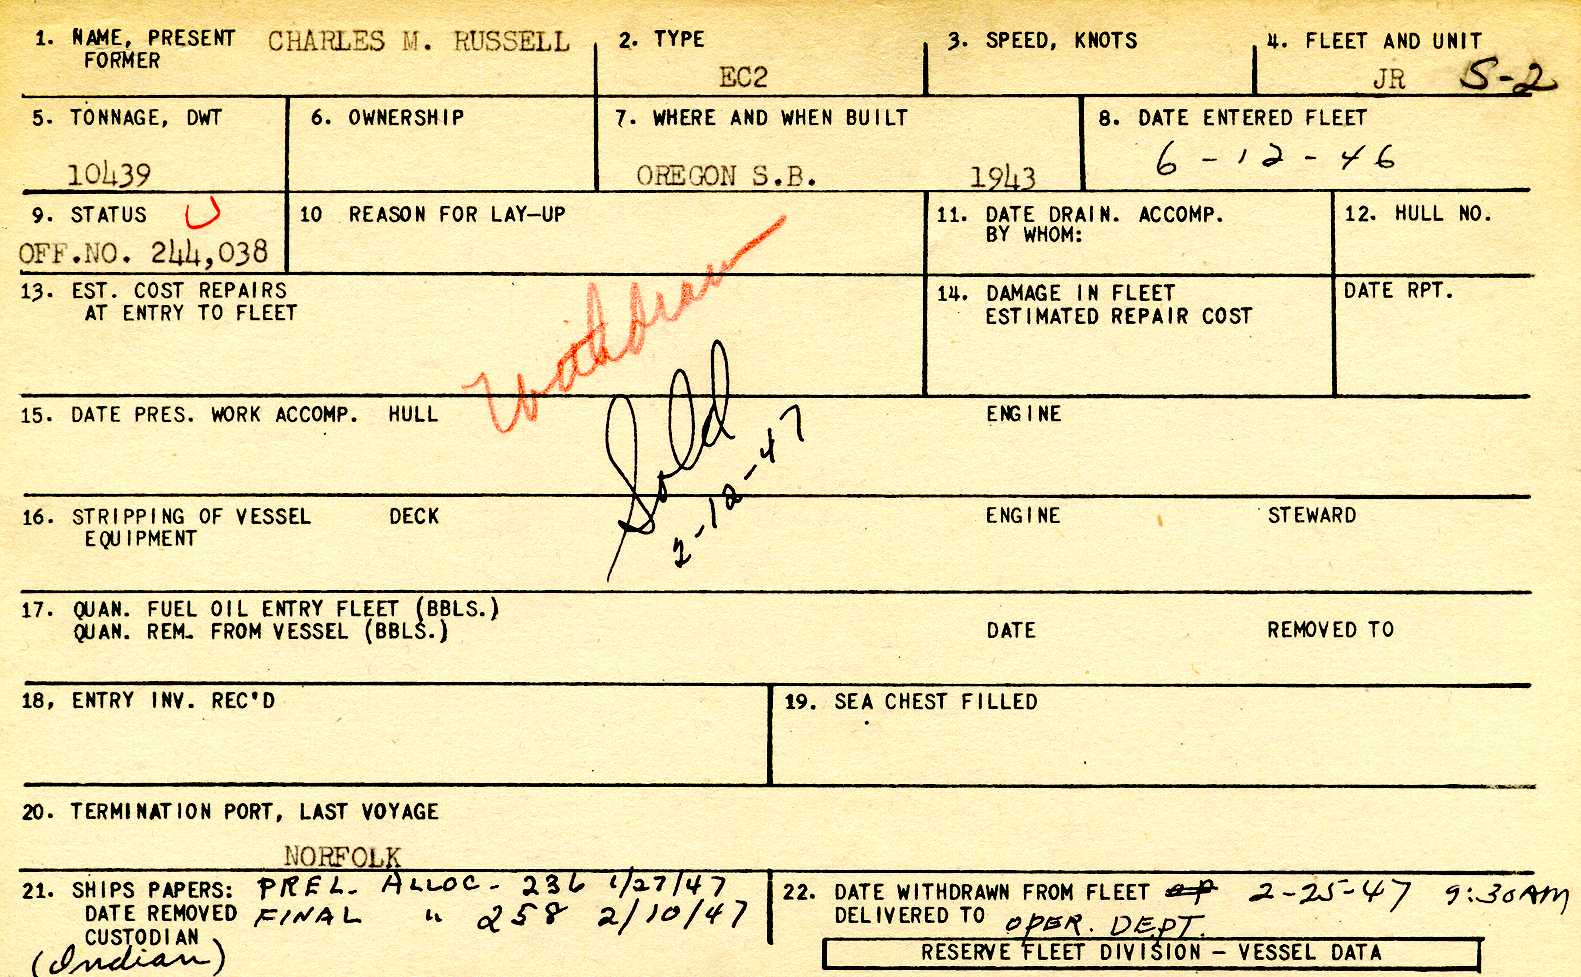 1. NAME, PRESENT CHARLES M. RUSSELL
FORMER
2. TYPE
EC2
3. SPEED, KNOTS
4. FLEET AND UNIT
JR S-2
5. TONNAGE, DWT
10439
6. OWNERSHIP
7. WHERE AND WHEN BUILT
OREGON S.B. 1943
8. DATE ENTERED FLEET
6-12-46
9. STATUS U
OFF.NO. 244,038
10 REASON FOR LAY-UP
11. DATE DRAIN. ACCOMP.
BY WHOM:
12. HULL NO.
13. EST. COST REPAIRS
AT ENTRY TO FLEET
Withdrawn
14. DAMAGE IN FLEET
ESTIMATED REPAIR COST
DATE RPT.
15. DATE PRES. WORK ACCOMP. HULL ENGINE
Sold
2-12-47
16. STRIPPING OF VESSEL DECK ENGINE STEWARD
EQUIPMENT
17. QUAN. FUEL OIL ENTRY FLEET (BBLS.)
QUAN. REM. FROM VESSEL (BBLS.) DATE REMOVED TO
18, ENTRY INV. REC'D
19. SEA CHEST FILLED
20. TERMINATION PORT, LAST VOYAGE
NORFOLK
21. SHIPS PAPERS: PREL. ALLOC- 236 1/27/47
DATE REMOVED FINAL " 258 2/10/47
CUSTODIAN
(Indian)
22. DATE WITHDRAWN FROM FLEET 2-25-47 9:30AM
DELIVERED TO OPER. DEPT.
RESERVE FLEET DIVISION - VESSEL DATA